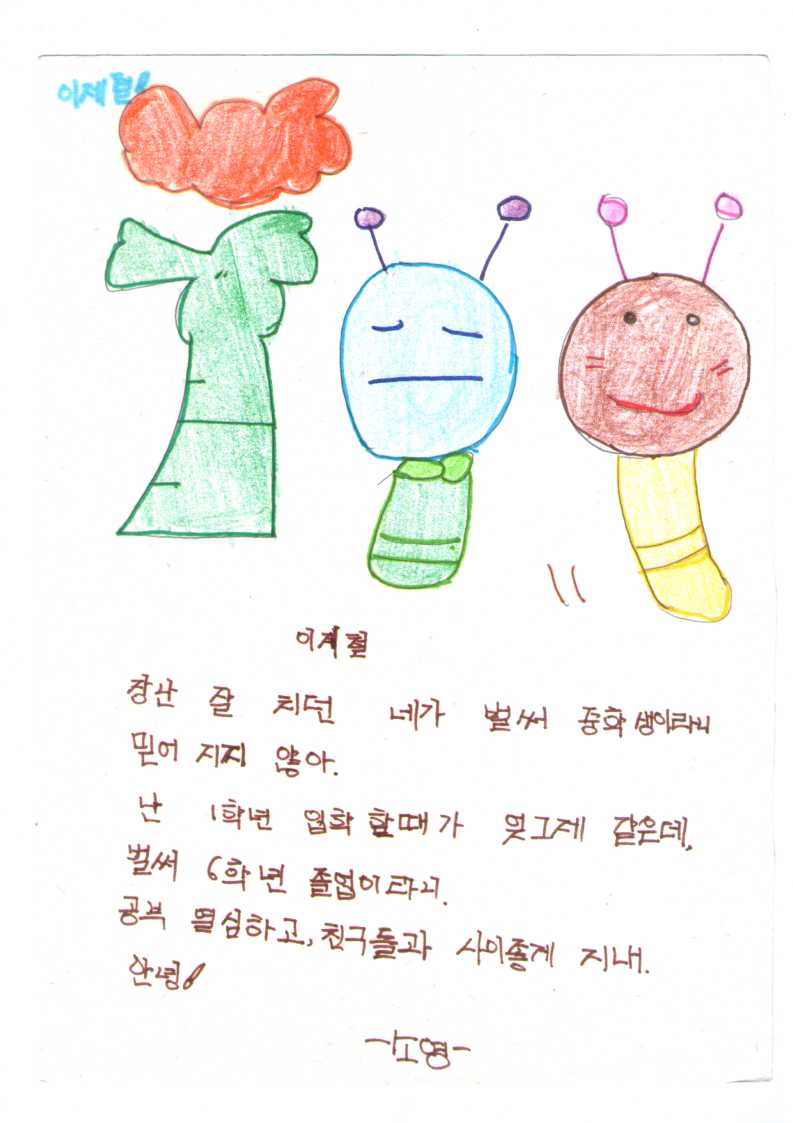 이제철!
이제철
장난 잘 치던 네가 벌써 중학생이라니
믿어 지지 않아.
난 1학년 입학 할때가 엊그제 같은데,
벌써 6학년 졸업이라니.
공부 열심하고, 친구들과 사이좋게 지내.
안녕!
-소영-